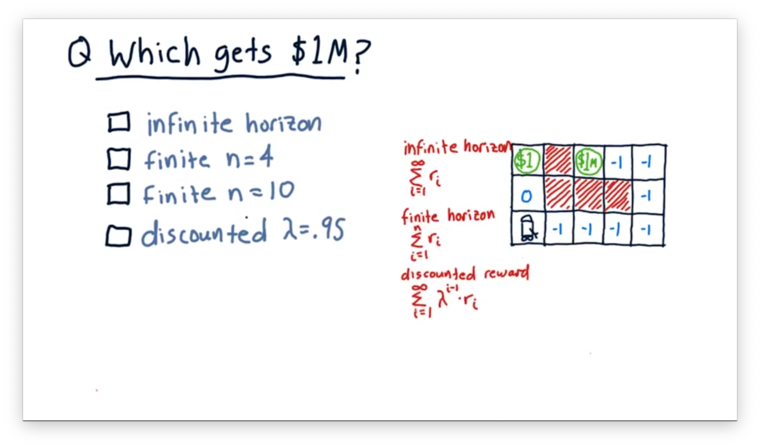 Q Which gets $1M?
infinite horizon
finite n=4
finite n=10
discounted λ=.95
infinite horizon
∞
Σ rᵢ
i=1
finite horizon
n
Σ rᵢ
i=1
discounted reward
∞
Σ λⁱ⁻¹·rᵢ
i=1
$1 $1M -1 -1
0 -1
-1 -1 -1 -1